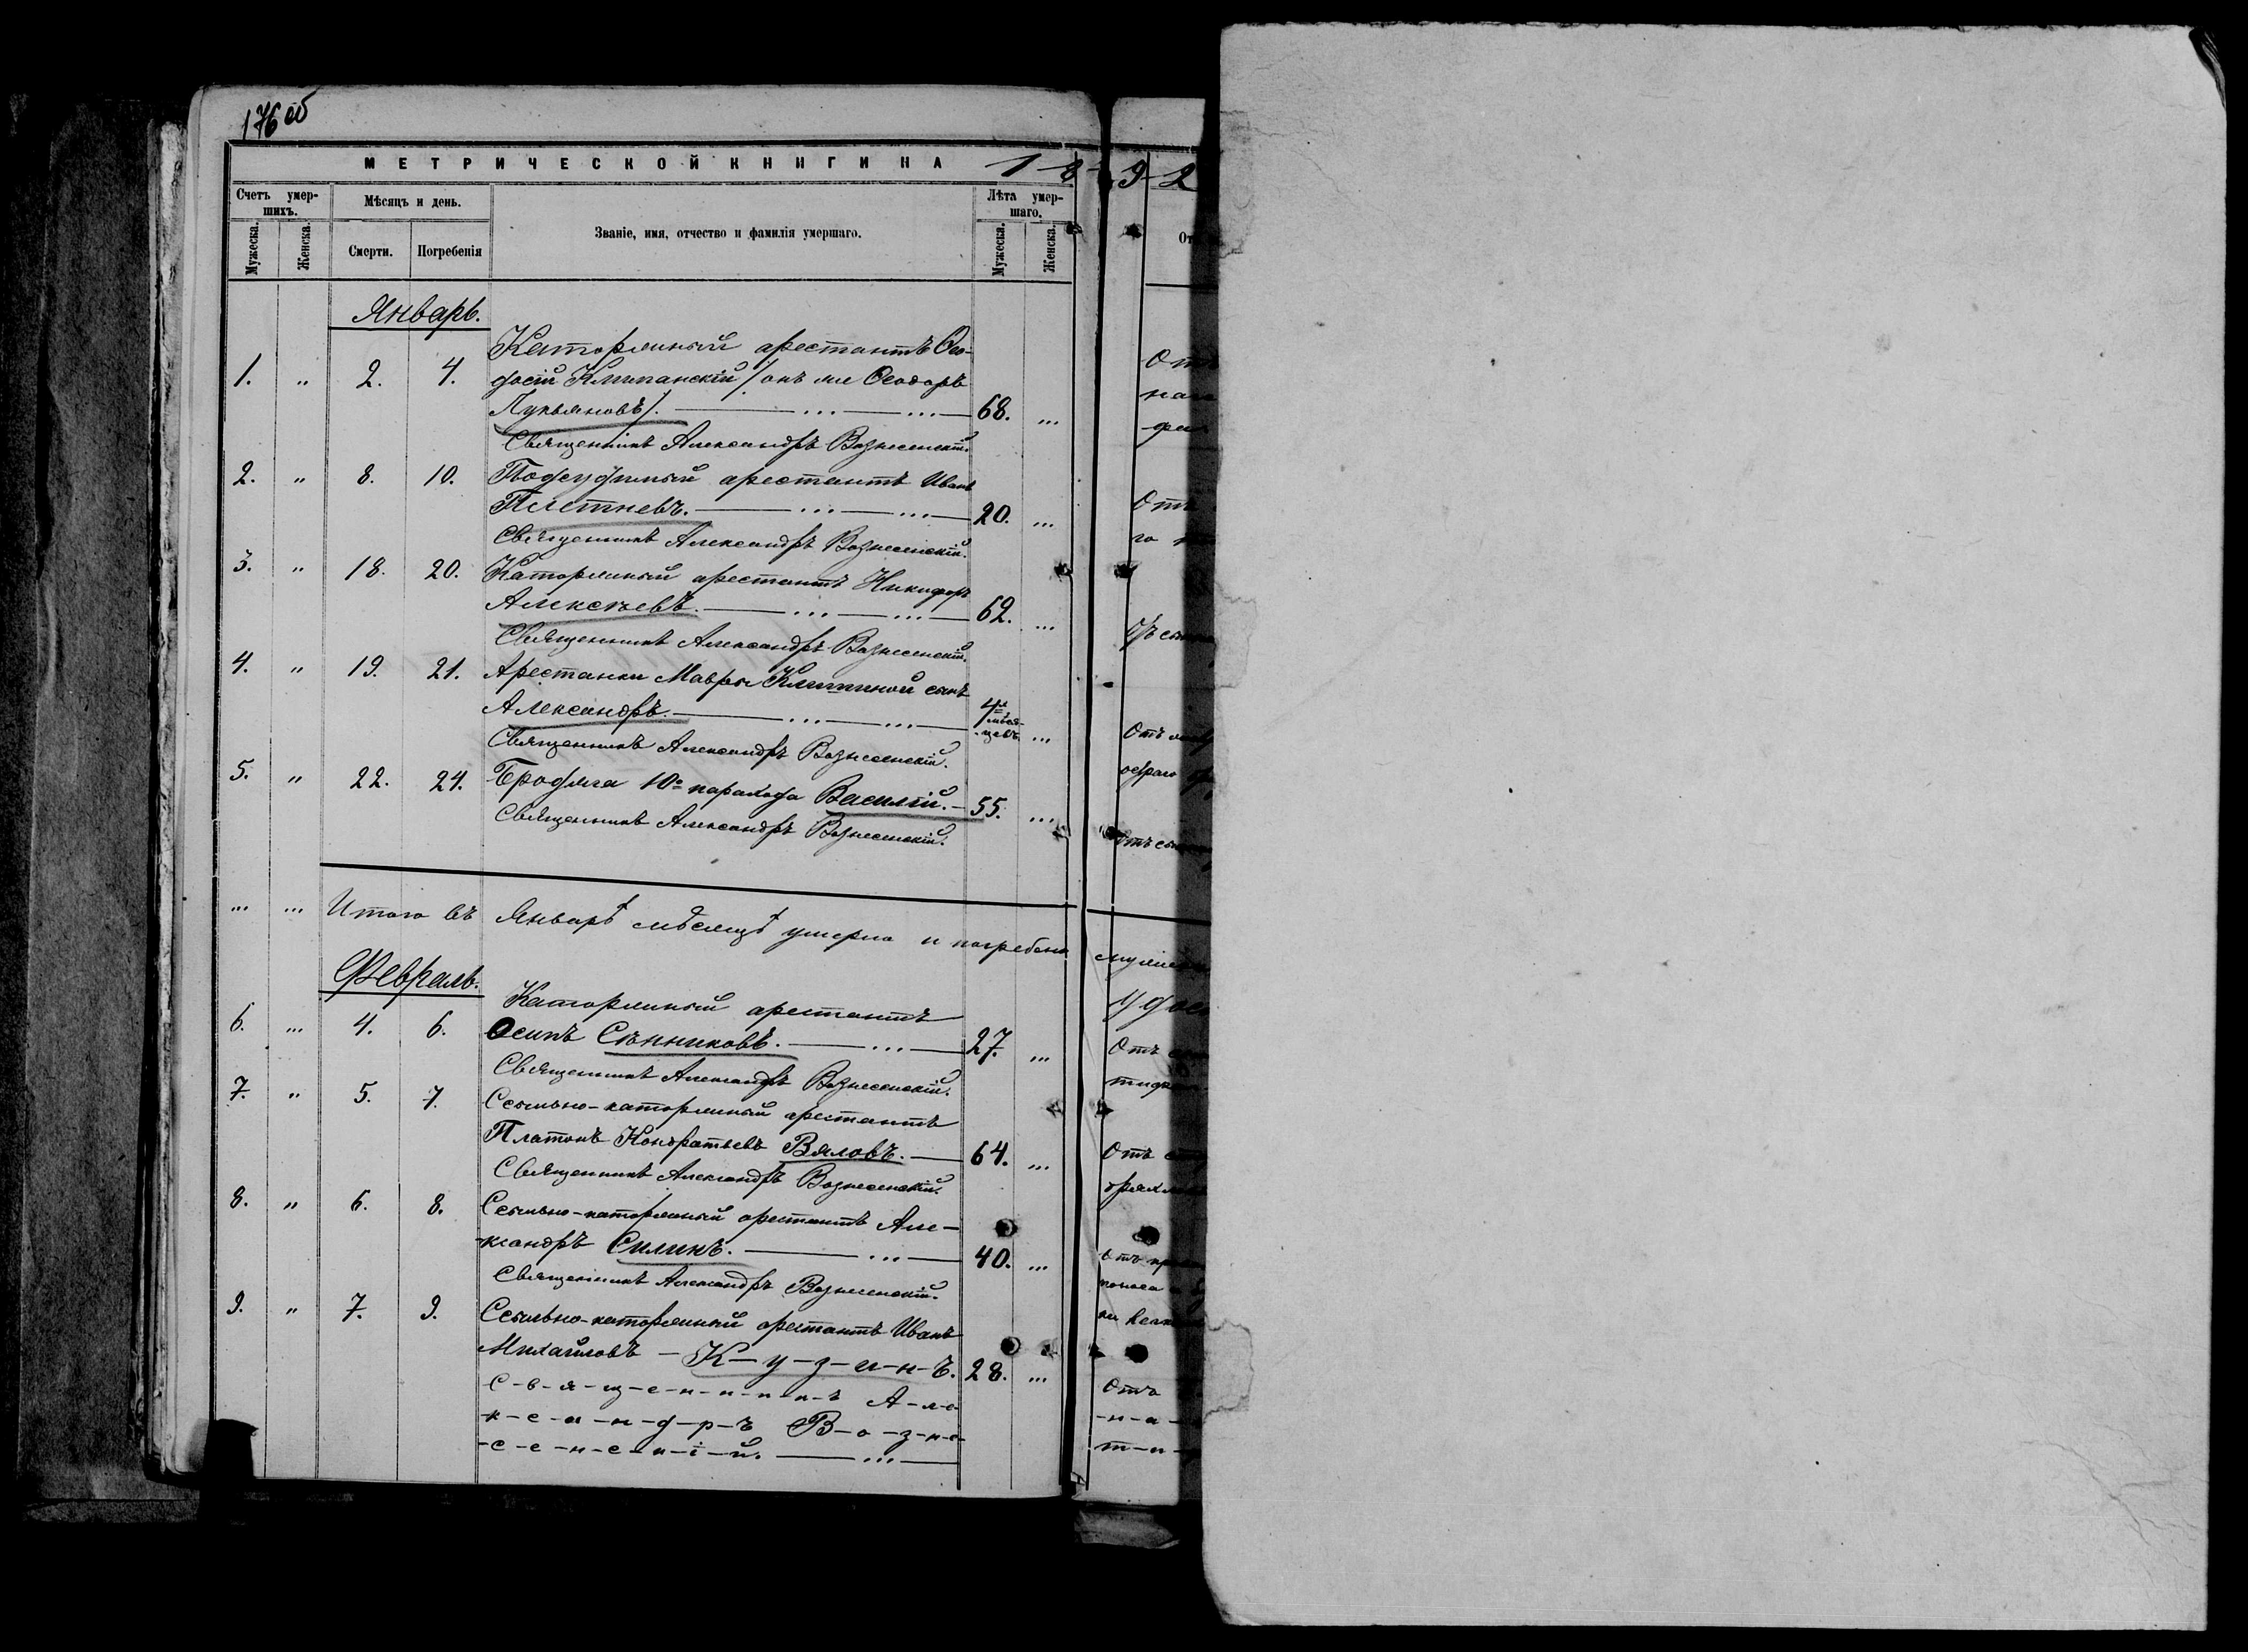 176 об
МЕТРИЧЕСКОЙ КНИГИ НА 1-8-9-2
Счетъ умер-
шихъ.
Мѣсяцъ и день.
Званіе, имя, отчество и фамилія умершаго.
Лѣта умер-
шаго.
Мужеска.
Женска.
Смерти.
Погребенія
Мужеска.
Женска.
Январь.
Каторжный арестантъ Ѳео-
1. " 2. 4. досій Климанскій /онъ же Ѳеодоръ
Лукьяновъ/. 68. ...
Священникъ Александръ Вознесенскій.
2. " 8. 10. Подсудимый арестантъ Иванъ
Плетневъ. 20. ...
Священникъ Александръ Вознесенскій.
3. " 18. 20. Каторжный арестантъ Никифоръ
Алексѣевъ. 62. ...
Священникъ Александръ Вознесенскій.
4. " 19. 21. Арестанки Мавры Климиной сынъ
Александръ. 4 мѣся-
-цевъ. ...
Священникъ Александръ Вознесенскій.
5. " 22. 24. Бродяга 10º парахода Василій. 55. ...
Священникъ Александръ Вознесенскій.
... ... Итого въ Январѣ мѣсяцѣ умерло и погребено
Февраль.
Каторжный арестантъ
6. ... 4. 6. Осипъ Сѣнниковъ. 27. ...
Священникъ Александръ Вознесенскій.
7. " 5. 7. Ссыльно-каторжный арестантъ
Платонъ Кондратьевъ Вяловъ. 64. ...
Священникъ Александръ Вознесенскій.
8. " 6. 8. Ссыльно-каторжный арестантъ Але-
-ксандръ Силинъ. 40. ...
Священникъ Александръ Вознесенскій.
9. " 7. 9. Ссыльно-каторжный арестантъ Иванъ
Михайловъ - К-у-з-и-н-ъ. 28. ...
С-в-я-щ-е-н-н-и-к-ъ А-л-е-
-к-с-а-н-д-р-ъ В-о-з-н-е-
-с-е-н-с-к-і-й. ...